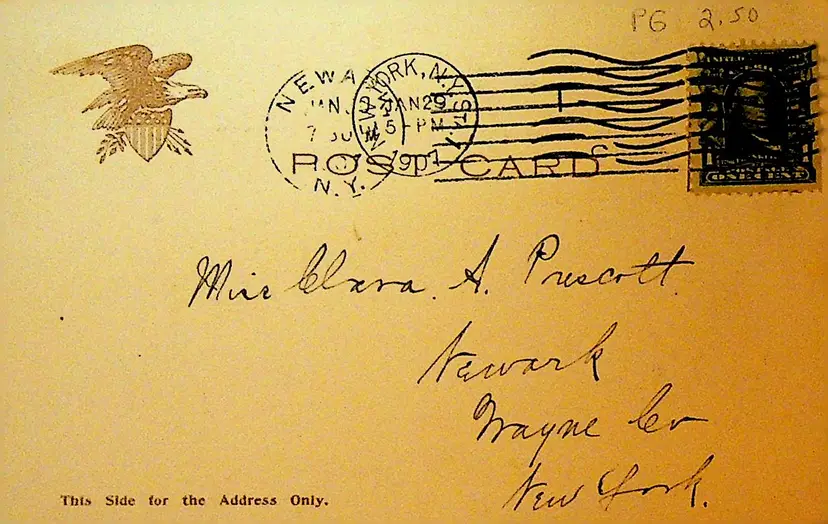 PG 2.50
NEWARK
NEW YORK, N.Y. STA.
JAN 29
5-PM
1907
N.Y.
POST CARD
ONE CENT
Miss Clara. A. Prescott
Newark
Wayne Co
New York.
This Side for the Address Only.